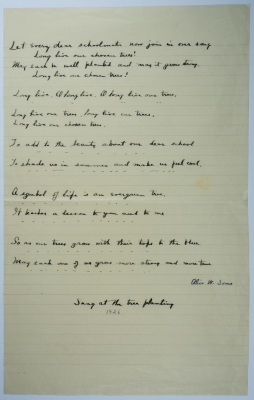 Let every dear schoolmate now join in our song
Long live our chosen trees!
May each be well planted and may it grow strong,
Long live our chosen trees!
Long live, A long live, A long live our trees,
Long live our trees, long live our trees,
Long live our chosen trees.
To add to the beauty about our dear school
To shade us in summer and make us feel cool,
A symbol of life is our evergreen tree,
It teaches a lesson to you and to me
So as our trees grow with their tops to the blue
May each one of us grow more strong and more true
W.
Sung at the tree planting
1926